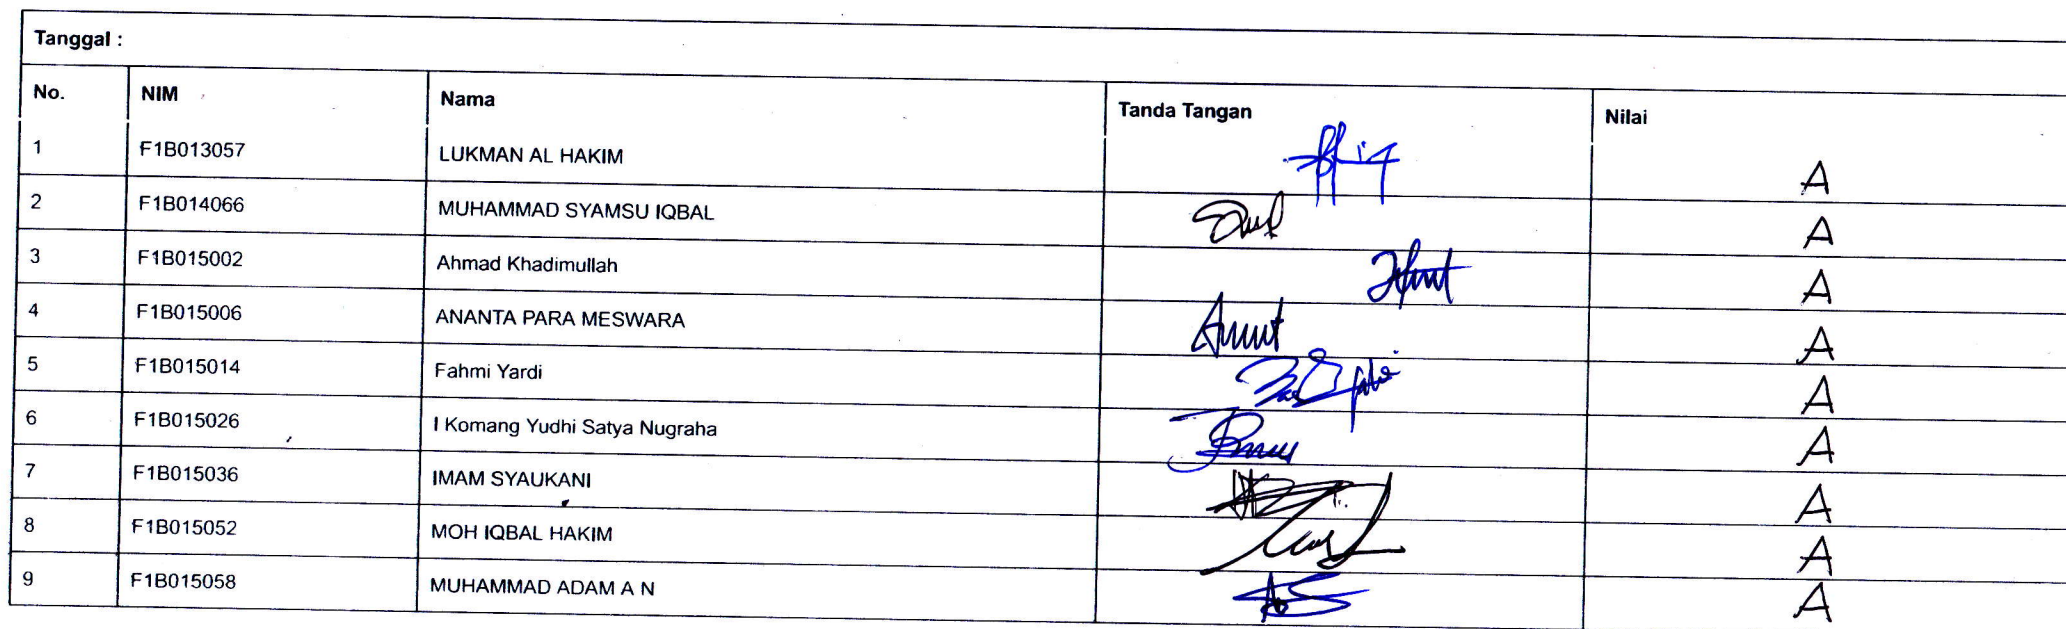 Tanggal :
No. NIM Nama Tanda Tangan Nilai
1 F1B013057 LUKMAN AL HAKIM A
2 F1B014066 MUHAMMAD SYAMSU IQBAL A
3 F1B015002 Ahmad Khadimullah A
4 F1B015006 ANANTA PARA MESWARA A
5 F1B015014 Fahmi Yardi A
6 F1B015026 I Komang Yudhi Satya Nugraha A
7 F1B015036 IMAM SYAUKANI A
8 F1B015052 MOH IQBAL HAKIM A
9 F1B015058 MUHAMMAD ADAM A N A